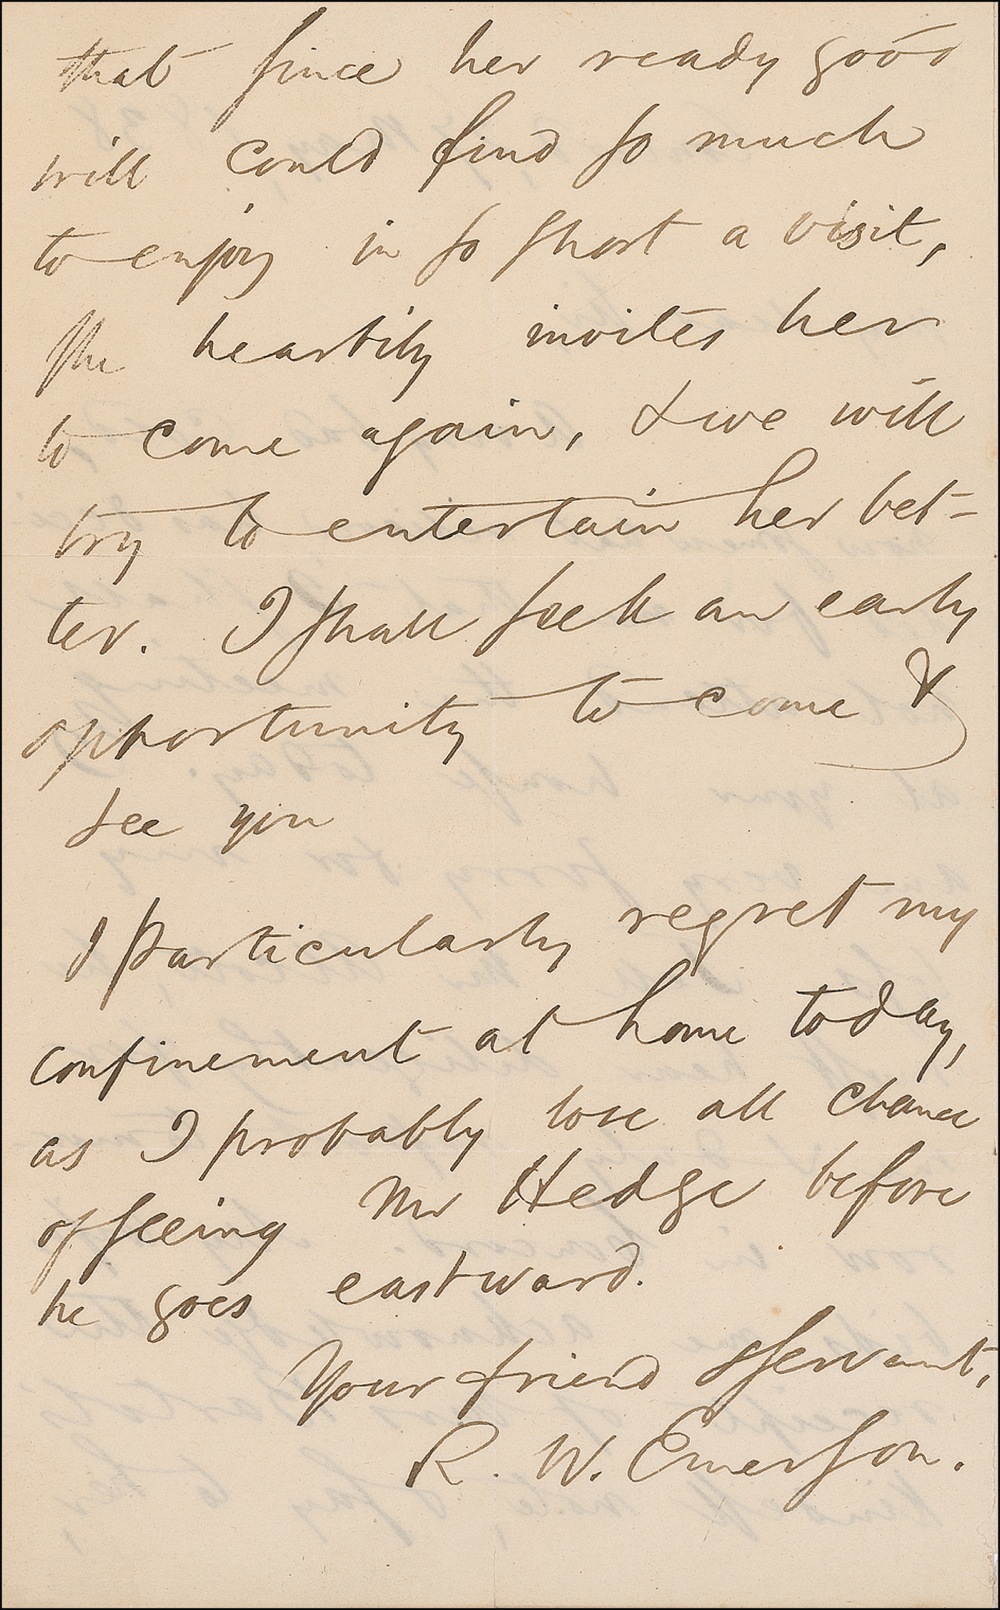 that since her ready good
will could find so much
to enjoy in so short a visit,
she heartily invites her
to come again, & we will
try to entertain her bet-
ter. I shall seek an early
opportunity to come &
see you
I particularly regret my
confinement at home today,
as I probably lose all chance
of seeing Mr Hedge before
he goes eastward.
Your friend & servant,
R. W. Emerson.